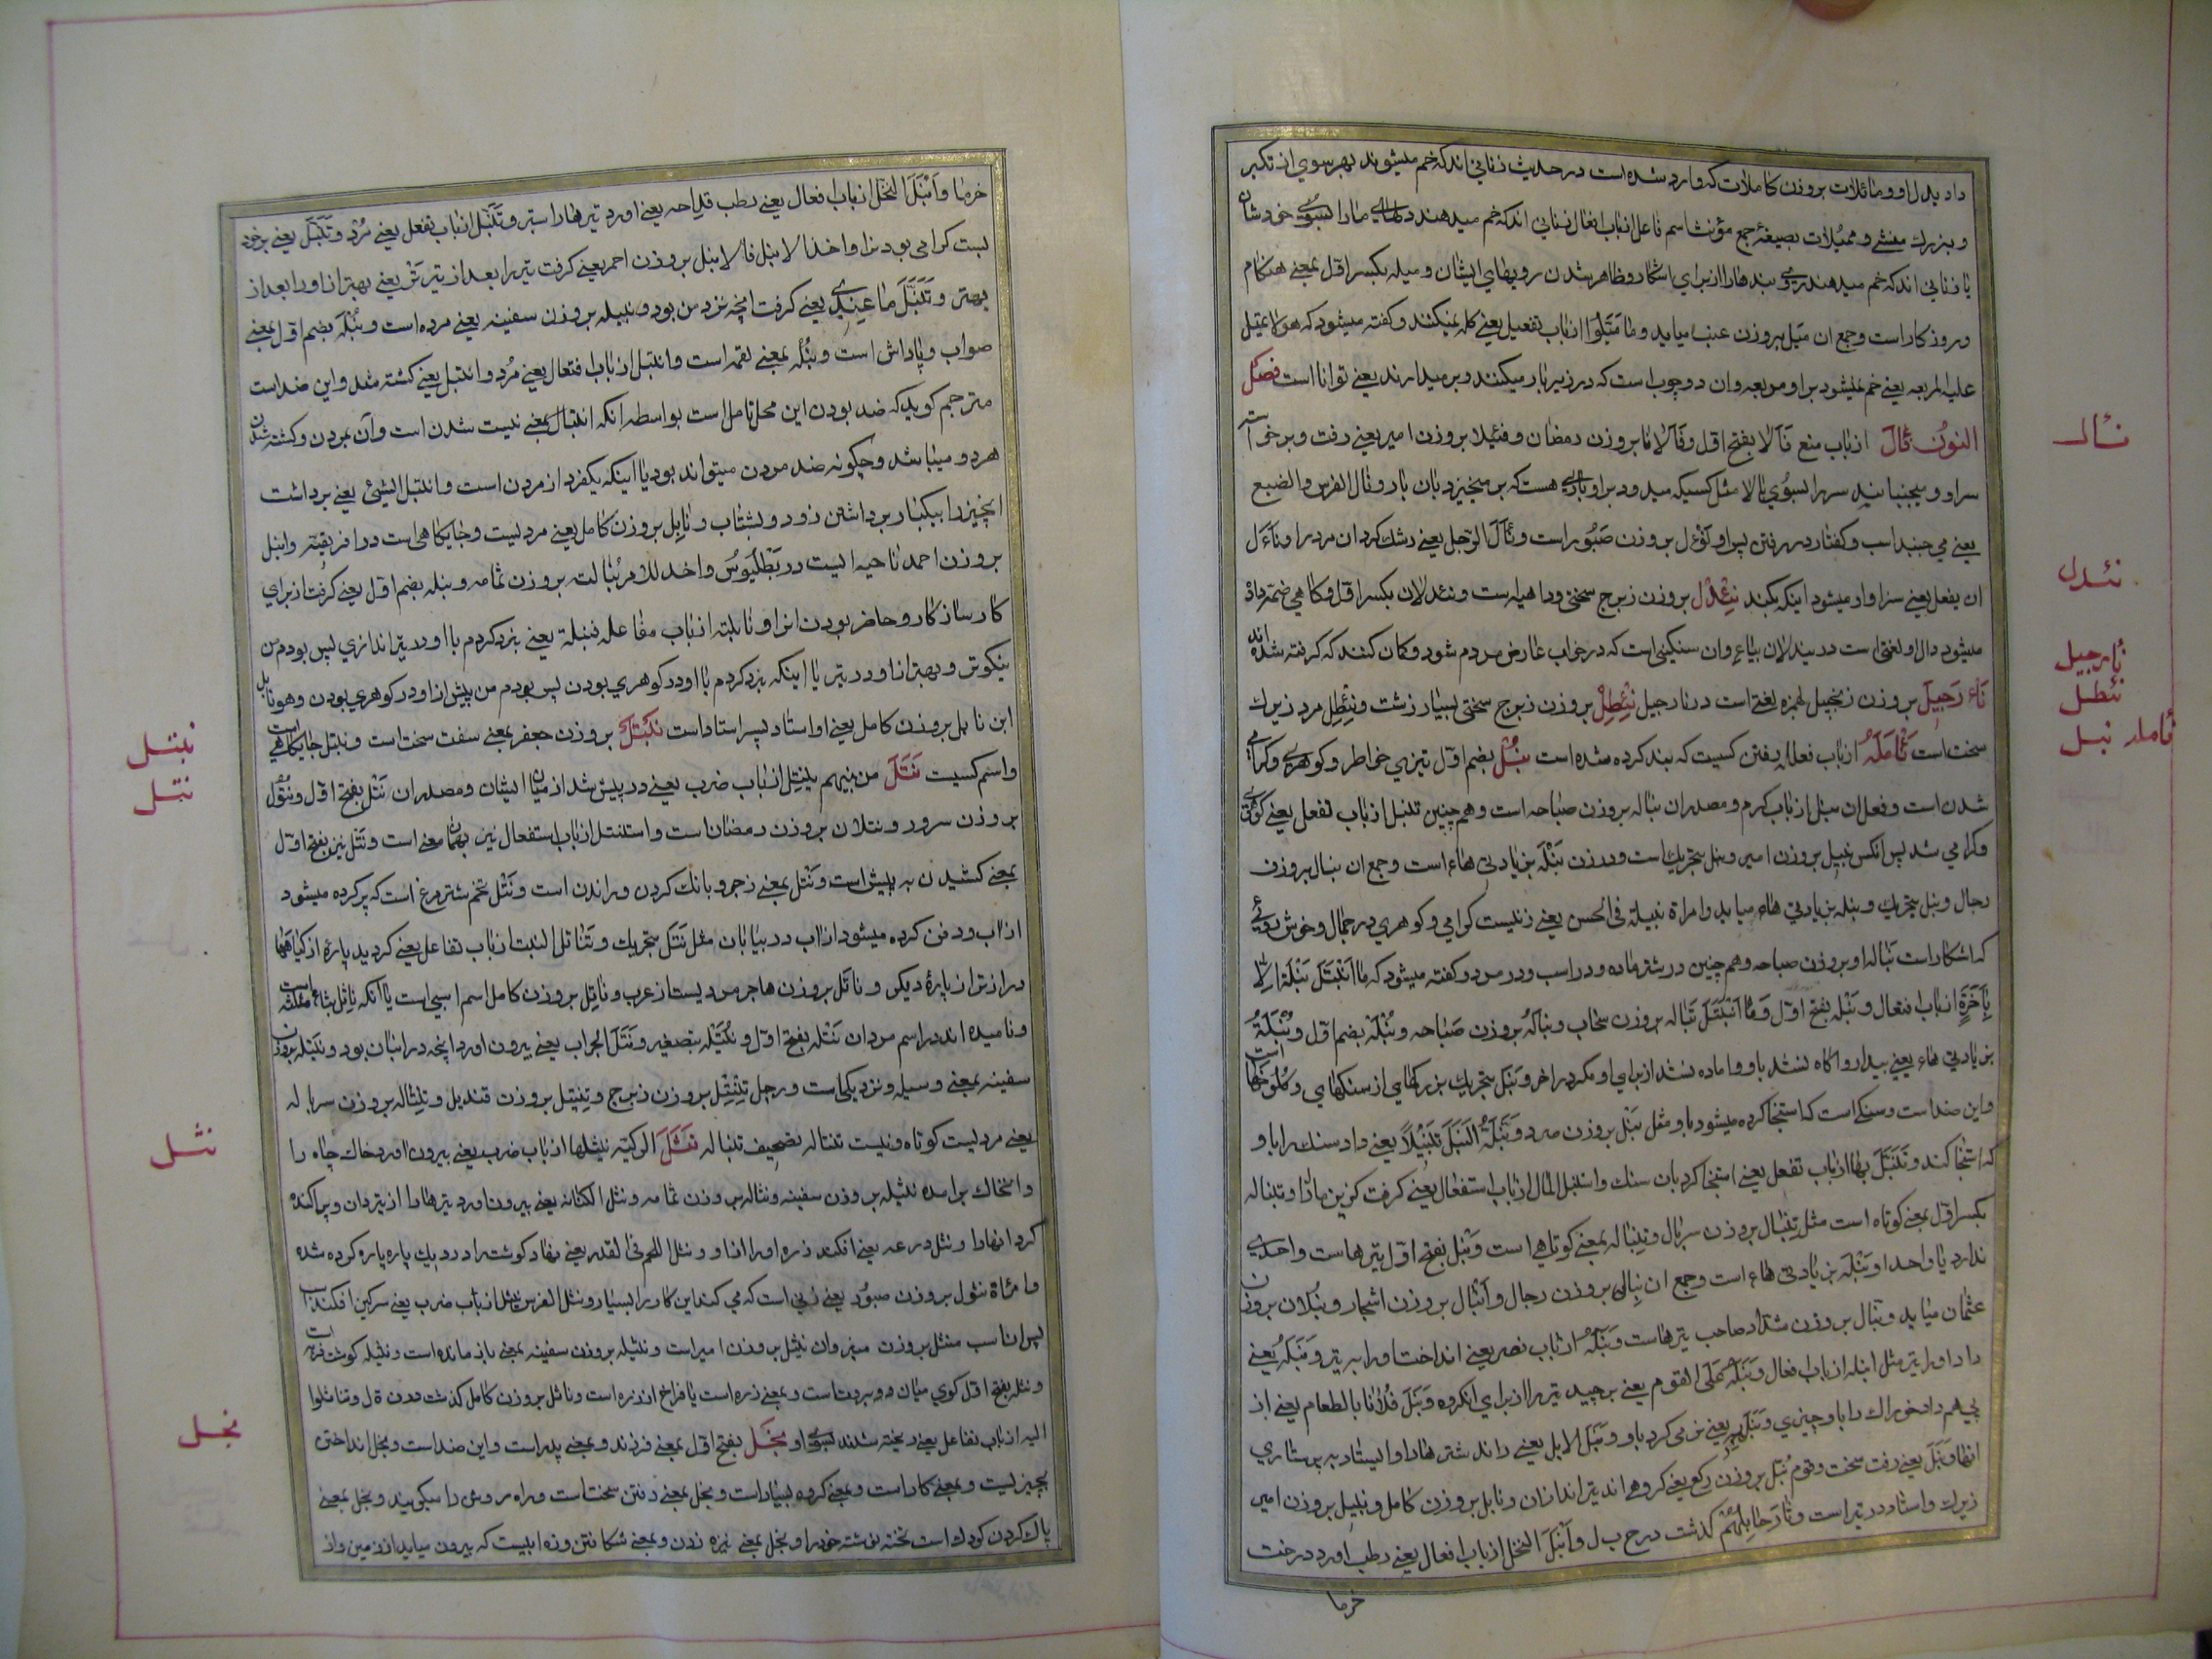 داد بدل او و مائلات بروزن کاملات که وارد شده است در حدیث زنانی اند که خم میشوند بهر سوی از تکبر
یا زنانی اند که خم میدهند سربندها را از برای اشکار و ظاهر شدن رویهای ایشان و میله بکسر اول بمعنی هنکام
و روزکار است و جمع ان میل بروزن عنب میاید و ما میلوا از باب تفعیل یعنی کله نمیکنند و کفته میشود که هو لا تمیل
علیه المربعه یعنی خم نمیشود بر او مربعه وان دو چوب است که در زیر بار میکنند و بر میدارند یعنی توانا است فصل
النون نَأَلَ از باب منع نألا بفتح اول و نألانا بروزن رمضان و نئیلا بروزن امیر یعنی رفت و برخواسته
سر او و میجنبانید سر را بسوی بالا مثل کسیکه میدود و بر او باری هست که بر میخیزد بان بار و نال الفرس و الضبع
یعنی می جنبد اسب و کفتار در رفتن پس او نؤل بروزن صبور است و نأل الرجل یعنی رشک کرد ان مرد را و نأل
ان یفعل یعنی سزاوار میشود اینکه بکند نئدل بروزن زبرج سختی و داهیه است و نئدلان بکسر اول و کاهی ضمه داده
میشود دال او لغتی است در نیدلان بیاء وان سنکینی است که در خواب عارض مردم شود و کمان کنند که کرفته شده اند
نارجیل بروزن زنجبیل بهمزه لغتی است در نارجیل نئطل بروزن زبرج سختی بسیار زشت و نئطل مرد زیرک
سخت است نأمله از باب فعلله رفتن کسیست که بند کرده شده است نبل بضم اول تیزی خاطر و کوهری و کرامی
شدن است و فعل ان نبل از باب کرم و مصدر ان نباله بروزن صباحه است و هم چنین تنبل از باب تفعل یعنی کوهری
و کرامی شد پس انکس نبیل بروزن امیر و نبل بتحریک است و در زن نبله بزیادتی هاء است و جمع ان نبال بروزن
رجال و نبل بتحریک و نبله بزیادتی هاء میاید و امراة نبیلة فی الحسن یعنی زنیست کرامی و کوهری در جمال و خوش روئی
که اشکار است نباله او بروزن صباحه و هم چنین در شتر ماده و در اسب و در مرد و کفته میشود که ما انتبل نبلة الا
باخرة از باب افتعال و نبله بفتح اول و ما انتبل نباله بروزن سحاب و نباله بروزن صباحه و نبله بضم اول
بزیادتی هاء یعنی بیدار و اکاه نشد باو و اماده نشد از برای او مکر در اخر و نبل بتحریک بزرکهای از سنکهای و کلوخها است
که استنجا کند و تنبل بها از باب تفعل یعنی استنجا کرد بان سنک و استنبل المال از باب استفعال یعنی کرفت کزین مال را و تنباله
بکسر اول بمعنی کوتاه است مثل تنبال بروزن سربال و تنباله بمعنی کوتاهی است و نبل بفتح اول تیرهاست واحدی
ندارد یا واحد او نبله بزیادتی هاء است و جمع ان نبال بروزن رجال و انبال بروزن اشجار و نبلان بروزن
عثمان میاید و نبال بروزن شداد صاحب تیرهاست و نبله از باب نصر یعنی انداخت او را بتیر و نبله یعنی
داد او را تیر مثل انبله از باب افعال و نبل علی القوم یعنی برچید تیر را از برای انکروه و نبل فلانا بالطعام یعنی از
پی هم داد خوراک را باو چیزی و نبل به یعنی نرمی کرد باو و نبل الابل یعنی راند شترها را و ایستاد به پرستاری
انها و نبل یعنی رفت سخت و قوم نبل بروزن رکع یعنی کروهی اند تیراندازان و نابل بروزن کامل و نبیل بروزن امیر
زیرک و استاد در تیر است و ثار حابلهم کذشت در ح ب ل و انبل النخل از باب افعال یعنی رطب اورد درخت
خرما
نئال
نئدل
نارجیل
نئطل
نأمله نبل
خرما و انبل النخل از باب افعال یعنی رطب
بهتر و تنبل ما عندی یعنی کرفت انچه نزد من بود و نبیله بروزن سفینه یعنی مرده است و نبله بضم اول بمعنی
صواب و پاداش است و نبله بمعنی لقمه است و انتبل از باب افتعال یعنی مرد و انتبل یعنی کشته شد و این ضد است
مترجم کوید که ضد بودن این محل تامل است بواسطه انکه انتبال بمعنی نیست شدن است وآن بمردن و کشته شدن
هر دو میباشد و چکونه ضد مردن میتواند بود یا اینکه یکفرد از مردن است و انتبل الشئ یعنی برداشت
انچیز را بیکبار برداشتن زود و بشتاب و نابل بروزن کامل یعنی مردیست و جایکاهی است در افریقیه و انبل
بروزن احمد ناحیه ایست در بطلیوس و اخذ للامر نبالته بروزن ثمامه و نبله بضم اول یعنی کرفت از برای
کار ساز کار و حاضر بودن انرا و نابلته از باب مفاعله فنبلته یعنی نبرد کردم با او در تیراندازی پس بودم من
نیکوتر و بهتر از او در تیر یا اینکه نبرد کردم با او در کوهری بودن پس بودم من پیش از او در کوهری بودن و هو نابل
ابن نابل بروزن کامل یعنی او استاد پسر استاد است نَبْتَل بروزن جعفر بمعنی سفت سخت است و نبتل جایکاهی است
و اسم کسیست نَتَلَ من بینهم ینتل از باب ضرب یعنی در پیش شد از میان ایشان و مصدر ان نتل بفتح اول و نتول
بروزن سرور و نتلان بروزن رمضان است و استنتل از باب استفعال نیز بهمان معنی است و نتل نیز بفتح اول
بمعنی کشیدن به پیش است و نتل بمعنی زجر و بانک کردن و راندن است و نتل تخم شتر مرغ است که پر کرده میشود
از اب و دفن کرده میشود از اب در بیابان مثل نتل بتحریک و تناتل النبت از باب تفاعل یعنی کردید پارهٔ از کیاهها
درازتر از پارهٔ دیکر و ناتل بروزن هاجر مردیست از عرب و ناتل بروزن کامل اسم اسبی است یا انکه ناثل بثاء مثلثه است
و نامیده اند در اسم مردان نتله بفتح اول و نتیله بتصغیر و نتل الجراب یعنی بیرون اورد انچه در انبان بود و نتیله بروزن
سفینه بمعنی وسیله و نزدیکی است و رجل تنتل بروزن زبرج و تنتیل بروزن قندیل و تنتاله بروزن سرباله
یعنی مردیست کوتاه و نیست تنتاله تصحیف تنباله نَثَلَ الرکیه ینثلها از باب ضرب یعنی بیرون اورد خاک چاه را
و انخاک برامده نثیله بروزن سفینه و نثاله بروزن ثمامه و نثل الکنانه یعنی بیرون اورد تیرها را از تیردان و پراکنده
کرد انها را و نثل درعه یعنی افکند زره او را از او و نثل اللحم فی القدر یعنی نهاد کوشت را در دیک پاره پاره کرده شده
و امرأة نثول بروزن صبور یعنی زنی است که می کند این کار را بسیار و نثل الفرس ینثل از باب ضرب یعنی سرکین افکند اسب
پس ان اسب منثل بروزن منبر و ان نثیل بروزن امیر است و نثیله بروزن سفینه بمعنی باز مانده است و نثیله کوشت فربه است
و نثله بفتح اول کوی میان دو بروت است و بمعنی زره است یا فراخ از زره است و ناثل بروزن کامل کذشت در ن ت ل و تناثلوا
الیه از باب تفاعل یعنی ریخته شدند بسوی او نَجْل بفتح اول بمعنی فرزند و بمعنی پدر است و این ضد است و نجل انداختن
بچیزیست و بمعنی کار است و بمعنی کروه بسیار است و نجل بمعنی رفتن سخت است و راه روشن را میکویند و نجل بمعنی
پاک کردن کودک است تخته نوشته خود را و نجل بمعنی نیزه زدن و بمعنی شکافتن و زه ابیست که بیرون میاید از زمین و از
نبتل
نتل
نثل
نجل